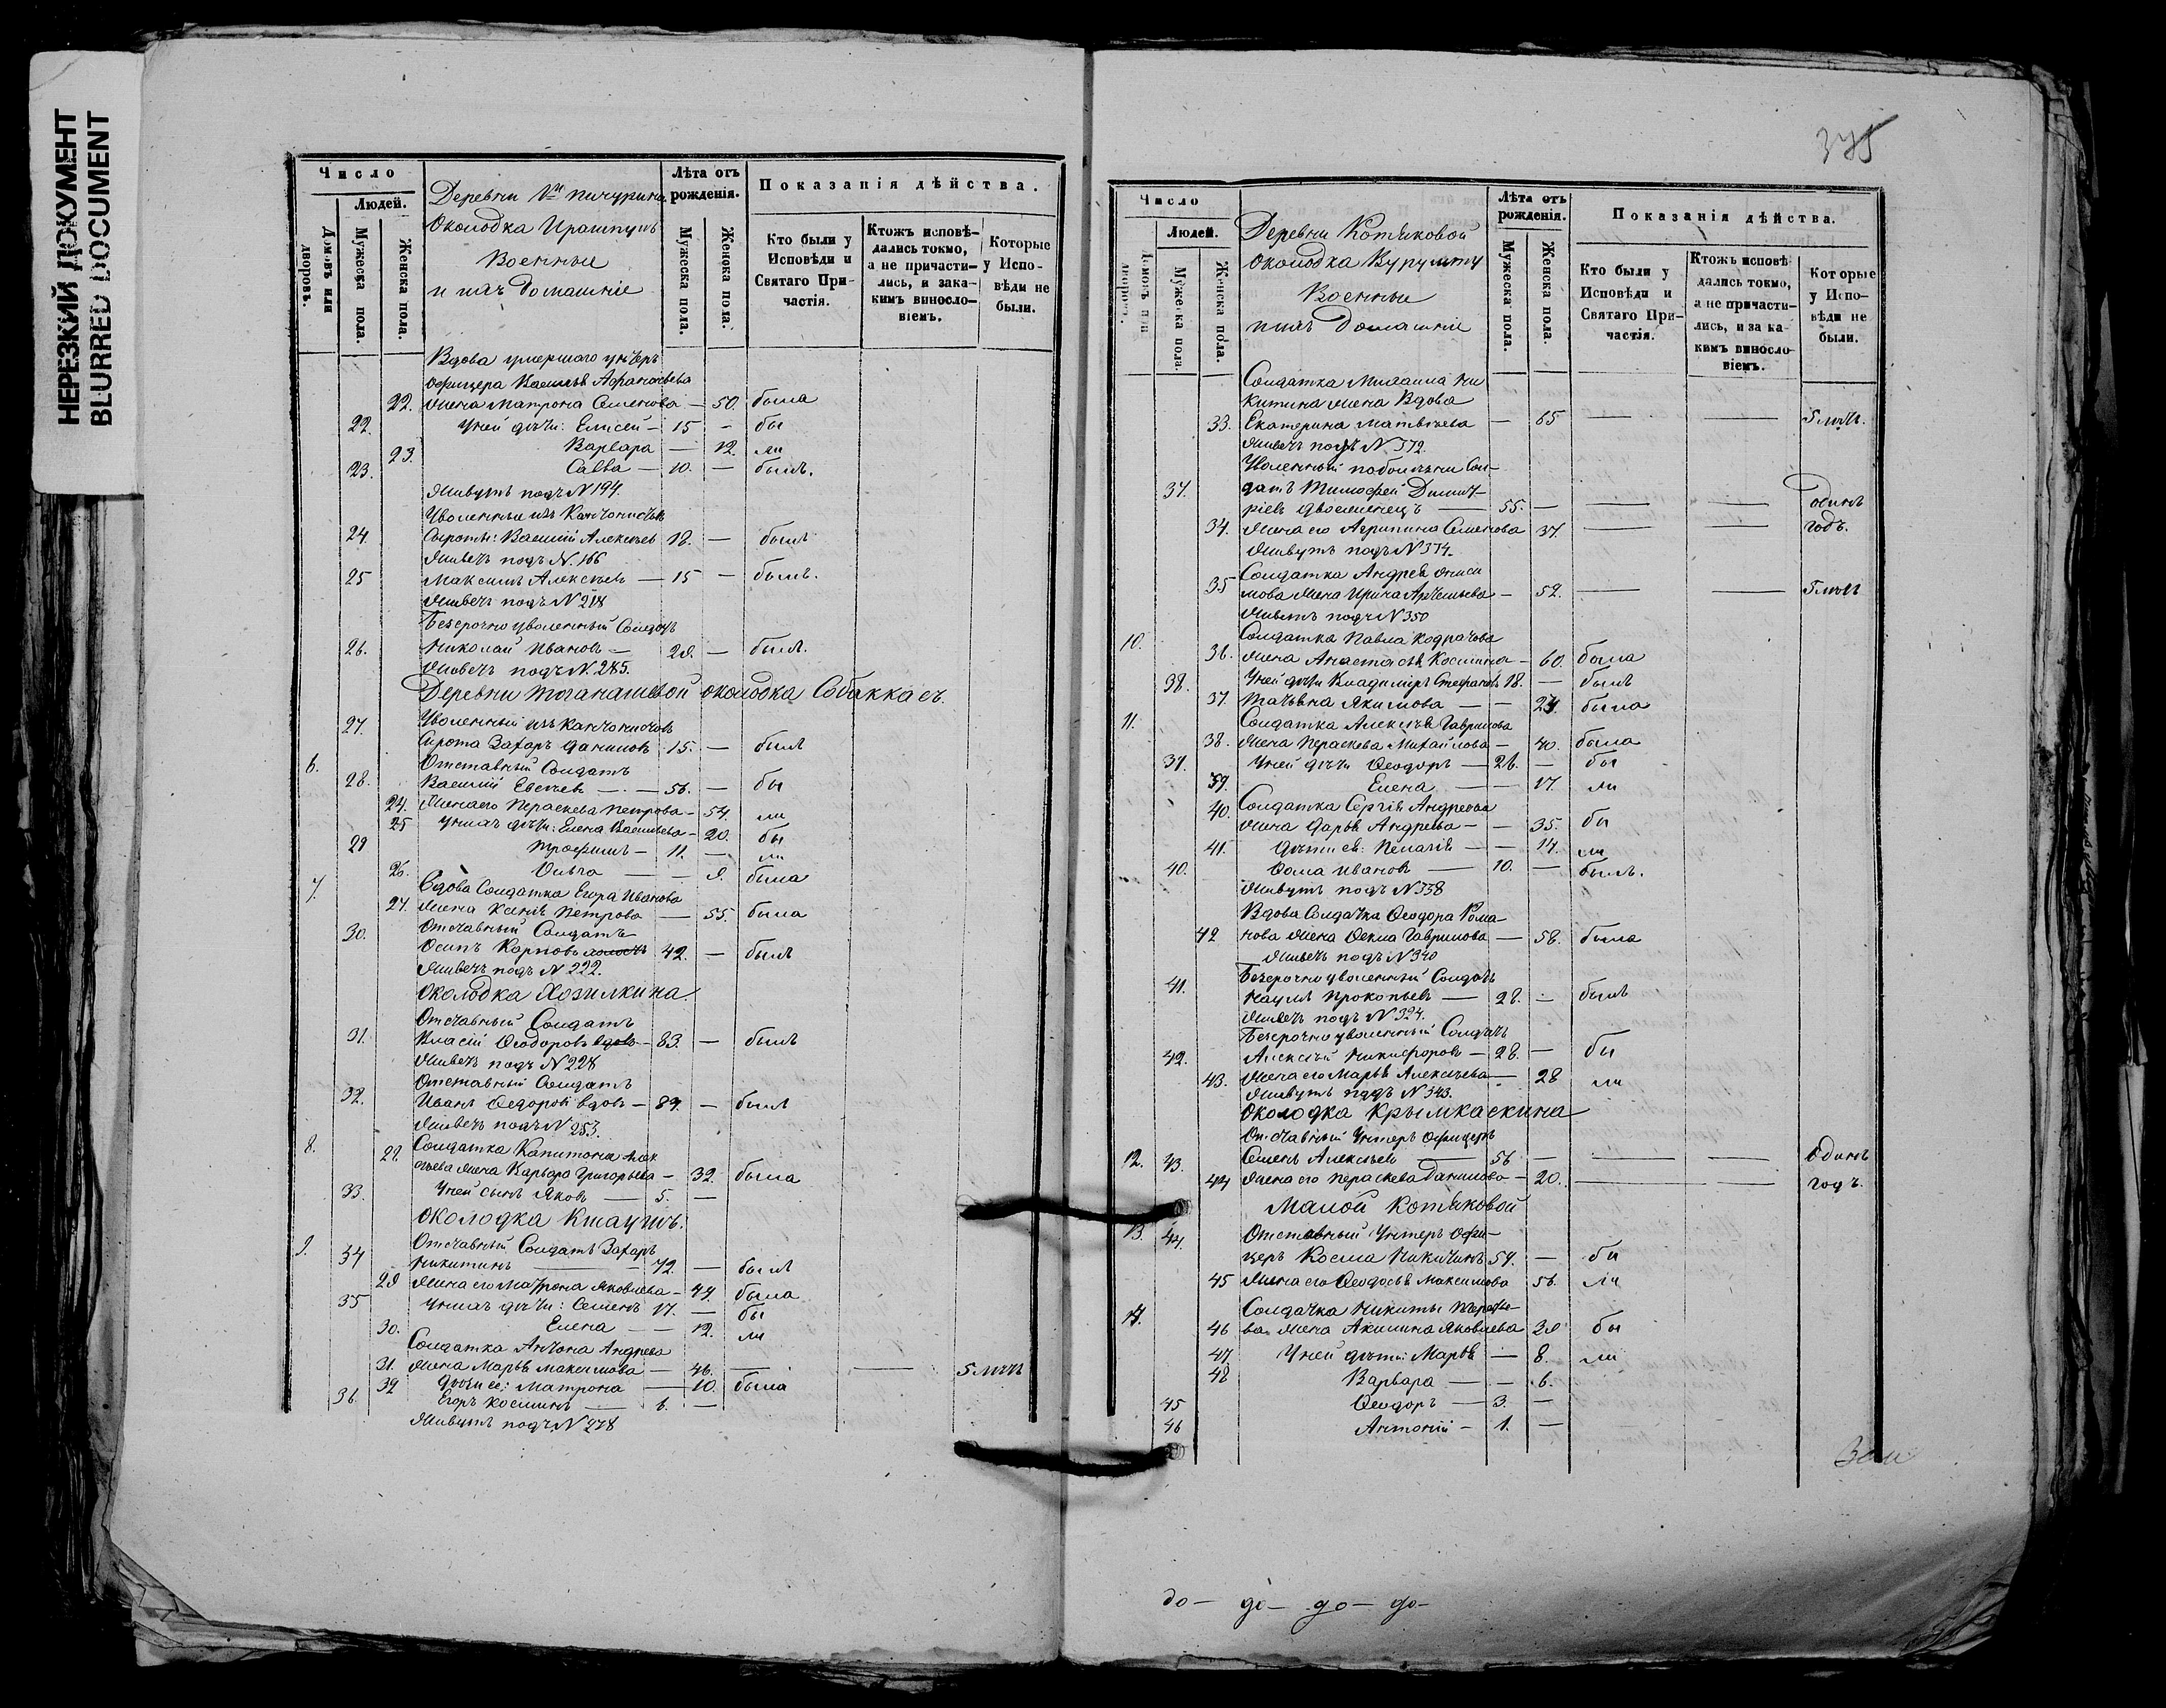 НЕРЕЗКИЙ ДОКУМЕНТ
BLURRED DOCUMENT
Число
Людей.
Домовъ или дворовъ.
Мужеска пола.
Женска пола.
Деревни
Околодка
Военные
и ихъ домашніе
Лѣта отъ рожденія.
Мужеска пола.
Женска пола.
Показанія дѣйства.
Кто были у Исповѣди и Святаго Причастія.
Ктожъ исповѣдались токмо, а не причастились, и за какимъ винословіемъ.
Которые у Исповѣди не были.
Вдова умершаго унтеръ
офицера Василья Афанасьева
22. жена Матрона Семенова — 50. была
22. У ней дѣти: Елисей — 15 — бы
23. Варвара — 12. ли
23. Савва — 10. — былъ.
Живутъ подъ N 194.
Уволенные изъ Кантонистовъ
24. Сироты: Василій Алексѣев 18. — былъ
Живетъ подъ N. 166
25 Максимъ Алексѣевъ — 15 — былъ.
Живетъ подъ N 218
Безсрочно уволенный Солдатъ
26. Николай Ивановъ — 29. — былъ.
Живетъ подъ N. 285.
Деревни Тоганашевой околодка Собаккасъ.
27. Уволенный изъ Кантонистовъ
Сирота Захаръ Даниловъ 15. — былъ
6. Отставный Солдатъ
28. Василій Евсѣевъ — 56. — бы
24. Жена его Параскева Петрова — 54. ли
25 У нихъ дѣти: Елена Васильева — 20. бы
29 Трофимъ — 11. — ли
26. Ольга — 9. была
7. Вдова Солдатка Егора Иванова
27. жена Ксенія Петрова — 55. была
30. Отставный Солдатъ
Осипъ Карповъ 42. — былъ
Живетъ подъ N 222.
Околодка Хозилкина.
Отставный Солдатъ
31. Власій Ѳеодоровъ вдовъ — 83. — былъ
Живетъ подъ N 228
Отставный Солдатъ
32. Иванъ Ѳедоровъ вдовъ — 89. — былъ
Живетъ подъ N 253.
8. Солдатка Капитона
28. жена Варвара Григорьева — 32. была
33. У ней сынъ Яковъ — 5. —
Околодка
9. Отставный Солдатъ Захаръ
34 Никитинъ — 72. — былъ
29 Жена его Матрона Яковлева — 44. была
35 У нихъ дѣти: Семенъ 17. — бы
30. Елена — 12. ли
Солдатка Антона Андреева
31. жена Марья Максимова — 46. — — 5 лѣтъ
32 Дѣти ее: Матрона — 10. была
36. Егоръ Косминъ — 6. —
Живутъ подъ N 278
375
Число
Людей.
Домовъ или дворовъ.
Мужеска пола.
Женска пола.
Деревни Котяковой
околодка Курушту
Военные
и ихъ домашніе
Лѣта отъ рожденія.
Мужеска пола.
Женска пола.
Показанія дѣйства.
Кто были у Исповѣди и Святаго Причастія.
Ктожъ исповѣдались токмо, а не причастились, и за какимъ винословіемъ.
Которые у Исповѣди не были.
Солдатка Михаила Ни
китина жена Вдова
33. Екатерина Матвѣева — 65 — — 5 лѣтъ.
Живетъ подъ N 372.
Уволенный по болѣзни Сол-
37. датъ Тимофей Димит-
ріевъ двоеженецъ — 55. — — — одинъ
34. Жена его Агрипина Семенова 37. — — годъ.
Живутъ подъ N 374.
Солдатка Андрея Аниси
35 мова жена Ирина — 52. — — 5 лѣтъ
Живетъ подъ N 350
10. Солдатка Павла Кодратова
36. жена Анастасья Космина — 60. была
38. У ней дѣти Владимиръ Стефановъ 18. — былъ
37. Татьяна Якимова — 24. была
11. Солдатка Алексѣя Гаврилова
38. жена Параскева Михайлова — 70. была
39. У ней дѣти Ѳеодоръ — 26. — бы
39. Елена — 17. ли
40. Солдатка Сергія Андреева
жена Дарья Андреева — 35. бы
41. Дѣти ея: Пелагія — 14. ли
40. Ѳома Ивановъ — 10. — былъ.
Живутъ подъ N 338
Вдова Солдатка Ѳеодора Рома-
42 нова жена Ѳекла Гаврилова — 58. была
Живетъ подъ N 340
Безсрочно уволенный Солдатъ
41. Наумъ Прокопьевъ — 28. — былъ
Живетъ подъ N 324.
Безсрочно уволенный Солдатъ
42. Алексѣй Никифоровъ — 28. — бы
43. Жена его Марья Алексѣева — 28 ли
Живутъ подъ N 343.
Околодка Крымкаскина
Отставный Унтеръ офицеръ
12. 43. Семенъ Алексѣевъ — 56 — — — Одинъ
44 Жена его Параскева Данилова — 20. — — годъ.
Малой Котяковой
13. 44. Отставный Унтеръ офи-
церъ Косма Никитинъ 59. — бы
45 Жена его Ѳеодосья Максимова 56. ли
14. Солдатка Никиты
46 ва жена Акилина Яковлева 39 бы
47 У ней дѣти: Марья — 8. ли
48 Варвара — 6.
45 Ѳеодоръ — 3. —
46 Антоній — 1. —
до — до — до — до —